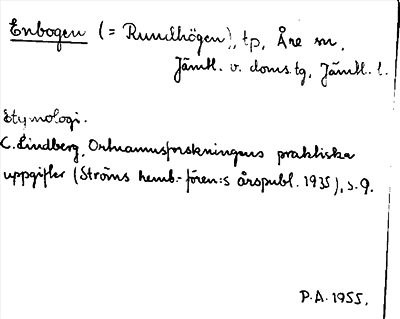 Enbogen (= Rundhögen), tp, Åre sn,
Jämtl. v. doms.tg, Jämtl. l.
Etymologi.
C. Lindberg, Ortnamnsforskningens praktiska
uppgifter (Ströms hemb.-fören:s årspubl. 1935), s. 9.
P.A. 1955.